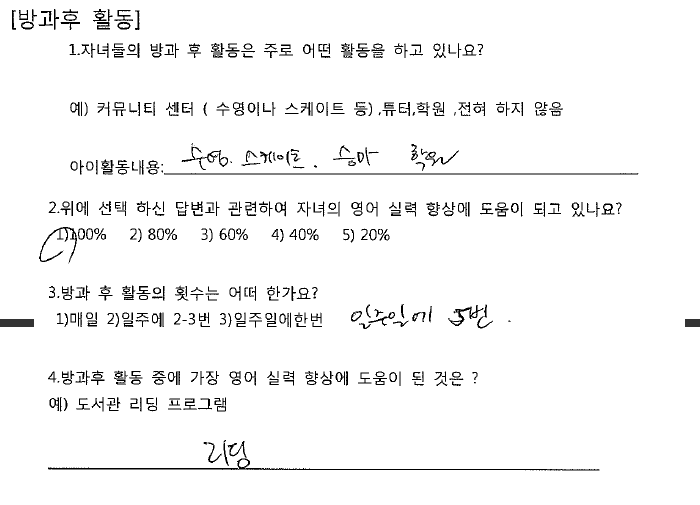 [방과후 활동]
1.자녀들의 방과 후 활동은 주로 어떤 활동을 하고 있나요?
예) 커뮤니티 센터 ( 수영이나 스케이트 등) ,튜터,학원 ,전혀 하지 않음
아이활동내용: 수영. 스케이트. 승마 학원
2.위에 선택 하신 답변과 관련하여 자녀의 영어 실력 향상에 도움이 되고 있나요?
1)100% 2) 80% 3) 60% 4) 40% 5) 20%
3.방과 후 활동의 횟수는 어떠 한가요?
1)매일 2)일주에 2-3번 3)일주일에한번 일주일에 5번.
4.방과후 활동 중에 가장 영어 실력 향상에 도움이 된 것은 ?
예) 도서관 리딩 프로그램
리딩